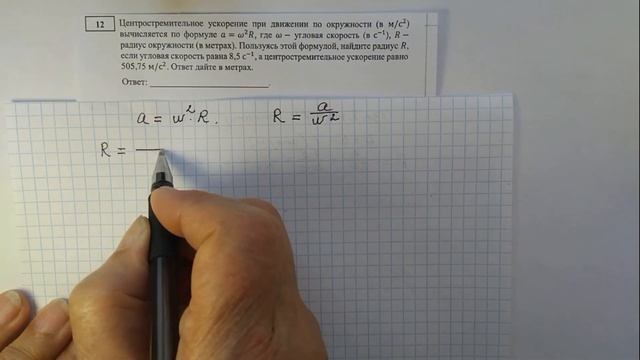 12 Центростремительное ускорение при движении по окружности (в м/с²)
вычисляется по формуле a = ω²R, где ω − угловая скорость (в с⁻¹), R −
радиус окружности (в метрах). Пользуясь этой формулой, найдите радиус R,
если угловая скорость равна 8,5 с⁻¹, а центростремительное ускорение равно
505,75 м/с². Ответ дайте в метрах.
Ответ: ___________________________.
a = w²·R. R = a/w²
R =